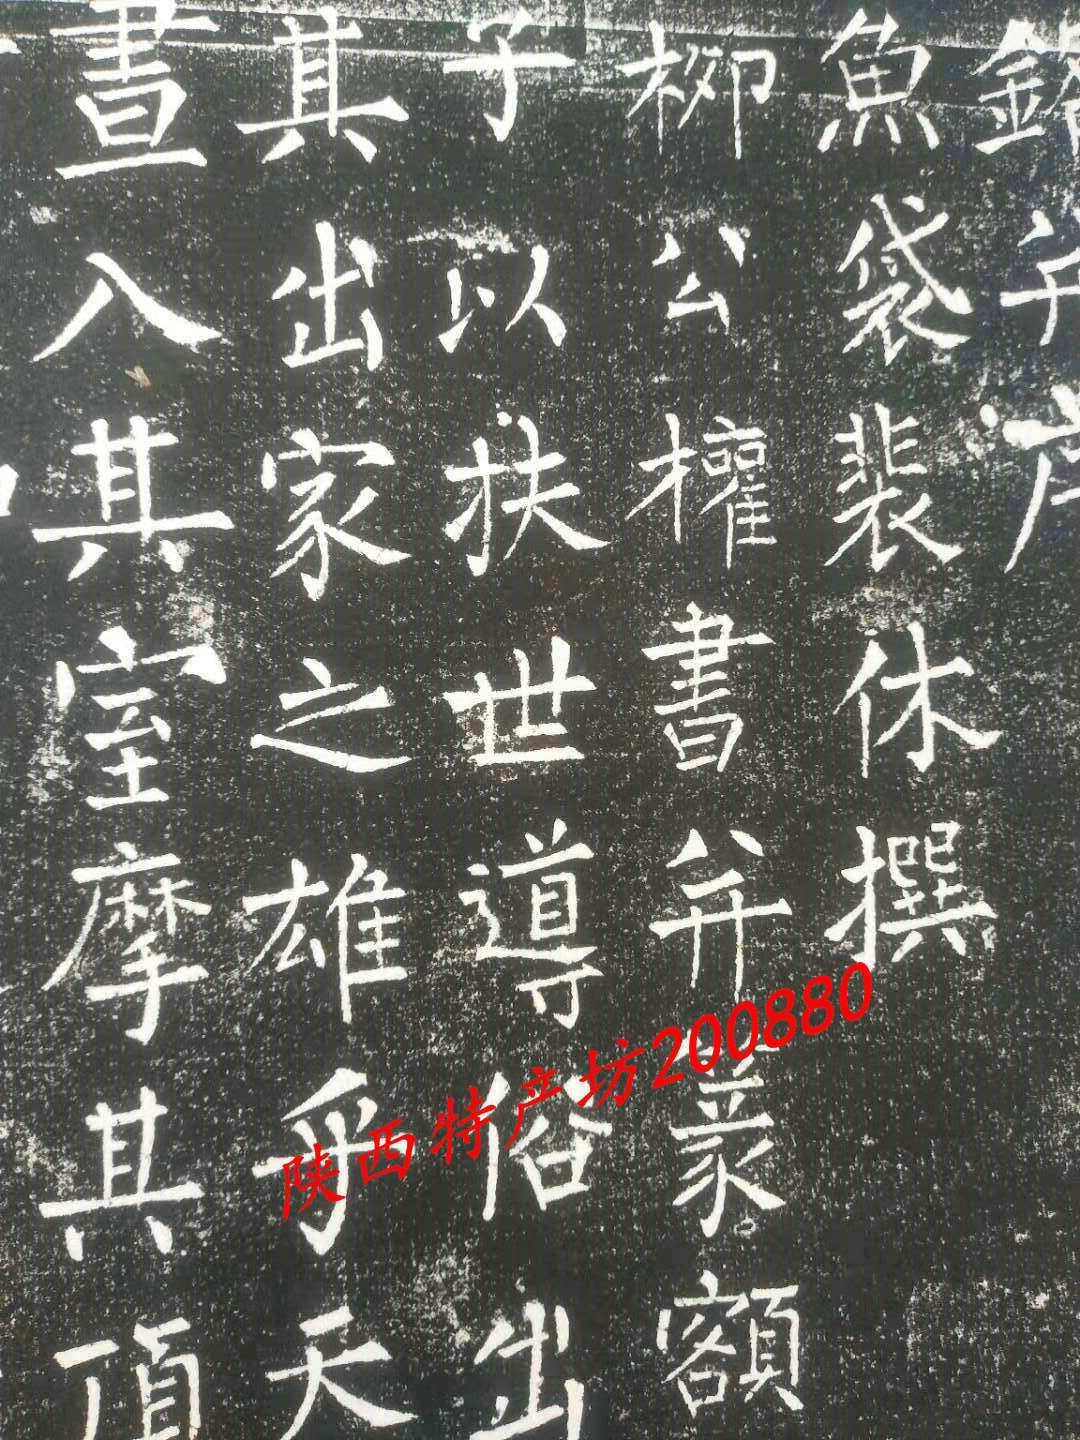 銘并序
魚袋裴休撰
柳公權書并篆額
子以扶世導俗出
其出家之雄乎天
晝入其室摩其頂
陕西特产坊200880